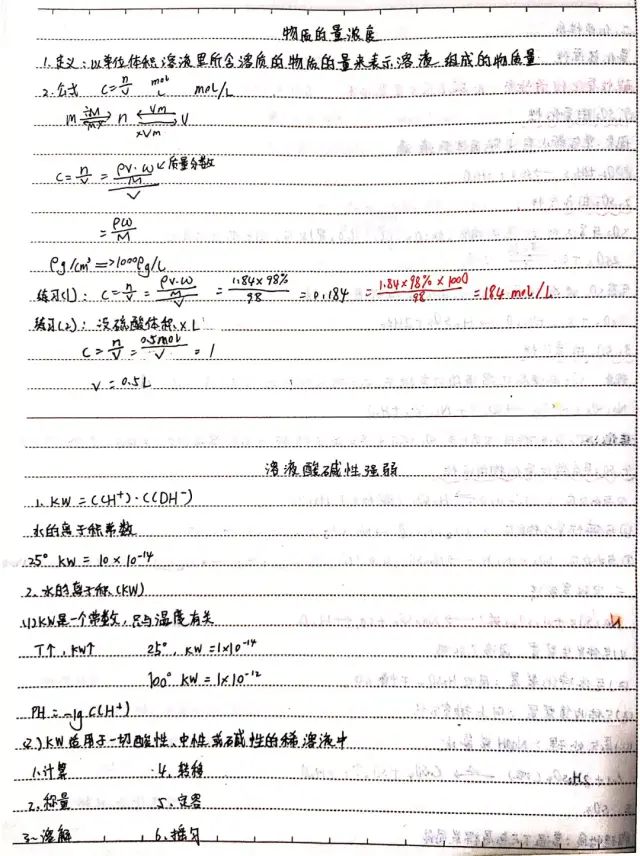 物质的量浓度
1.定义:以单位体积溶液里所含溶质的物质的量来表示溶液组成的物质量
2.公式 C=n/V mol/L mol/L
m ⇌ n ⇌ V ÷M ×M ÷Vm ×Vm
C=n/V=(ρV·ω/M)/V ↙质量分数
=ρω/M
ρg/cm³=>1000ρg/L
练习(1): C=n/V=(ρV·ω/M)/V =1.84×98%/98 =0.184 =1.84×98%×1000/98 =184 mol/L
练习(2): 设硫酸体积×L
C=n/V=0.5mol/V=1
V=0.5L
溶液酸碱性强弱
1. KW=C(H⁺)·C(OH⁻)
水的离子积常数
25° KW=10×10⁻¹⁴
2.水的离子积(KW)
(1)KW是一个常数,只与温度有关
T↑,KW↑ 25°, KW=1×10⁻¹⁴
100° KW=1×10⁻¹²
PH=-lg C(H⁺)
(2)KW适用于一切酸性、中性或碱性的稀溶液中
1、计算 4、转移
2、称量 5、定容
3、溶解 6、摇匀